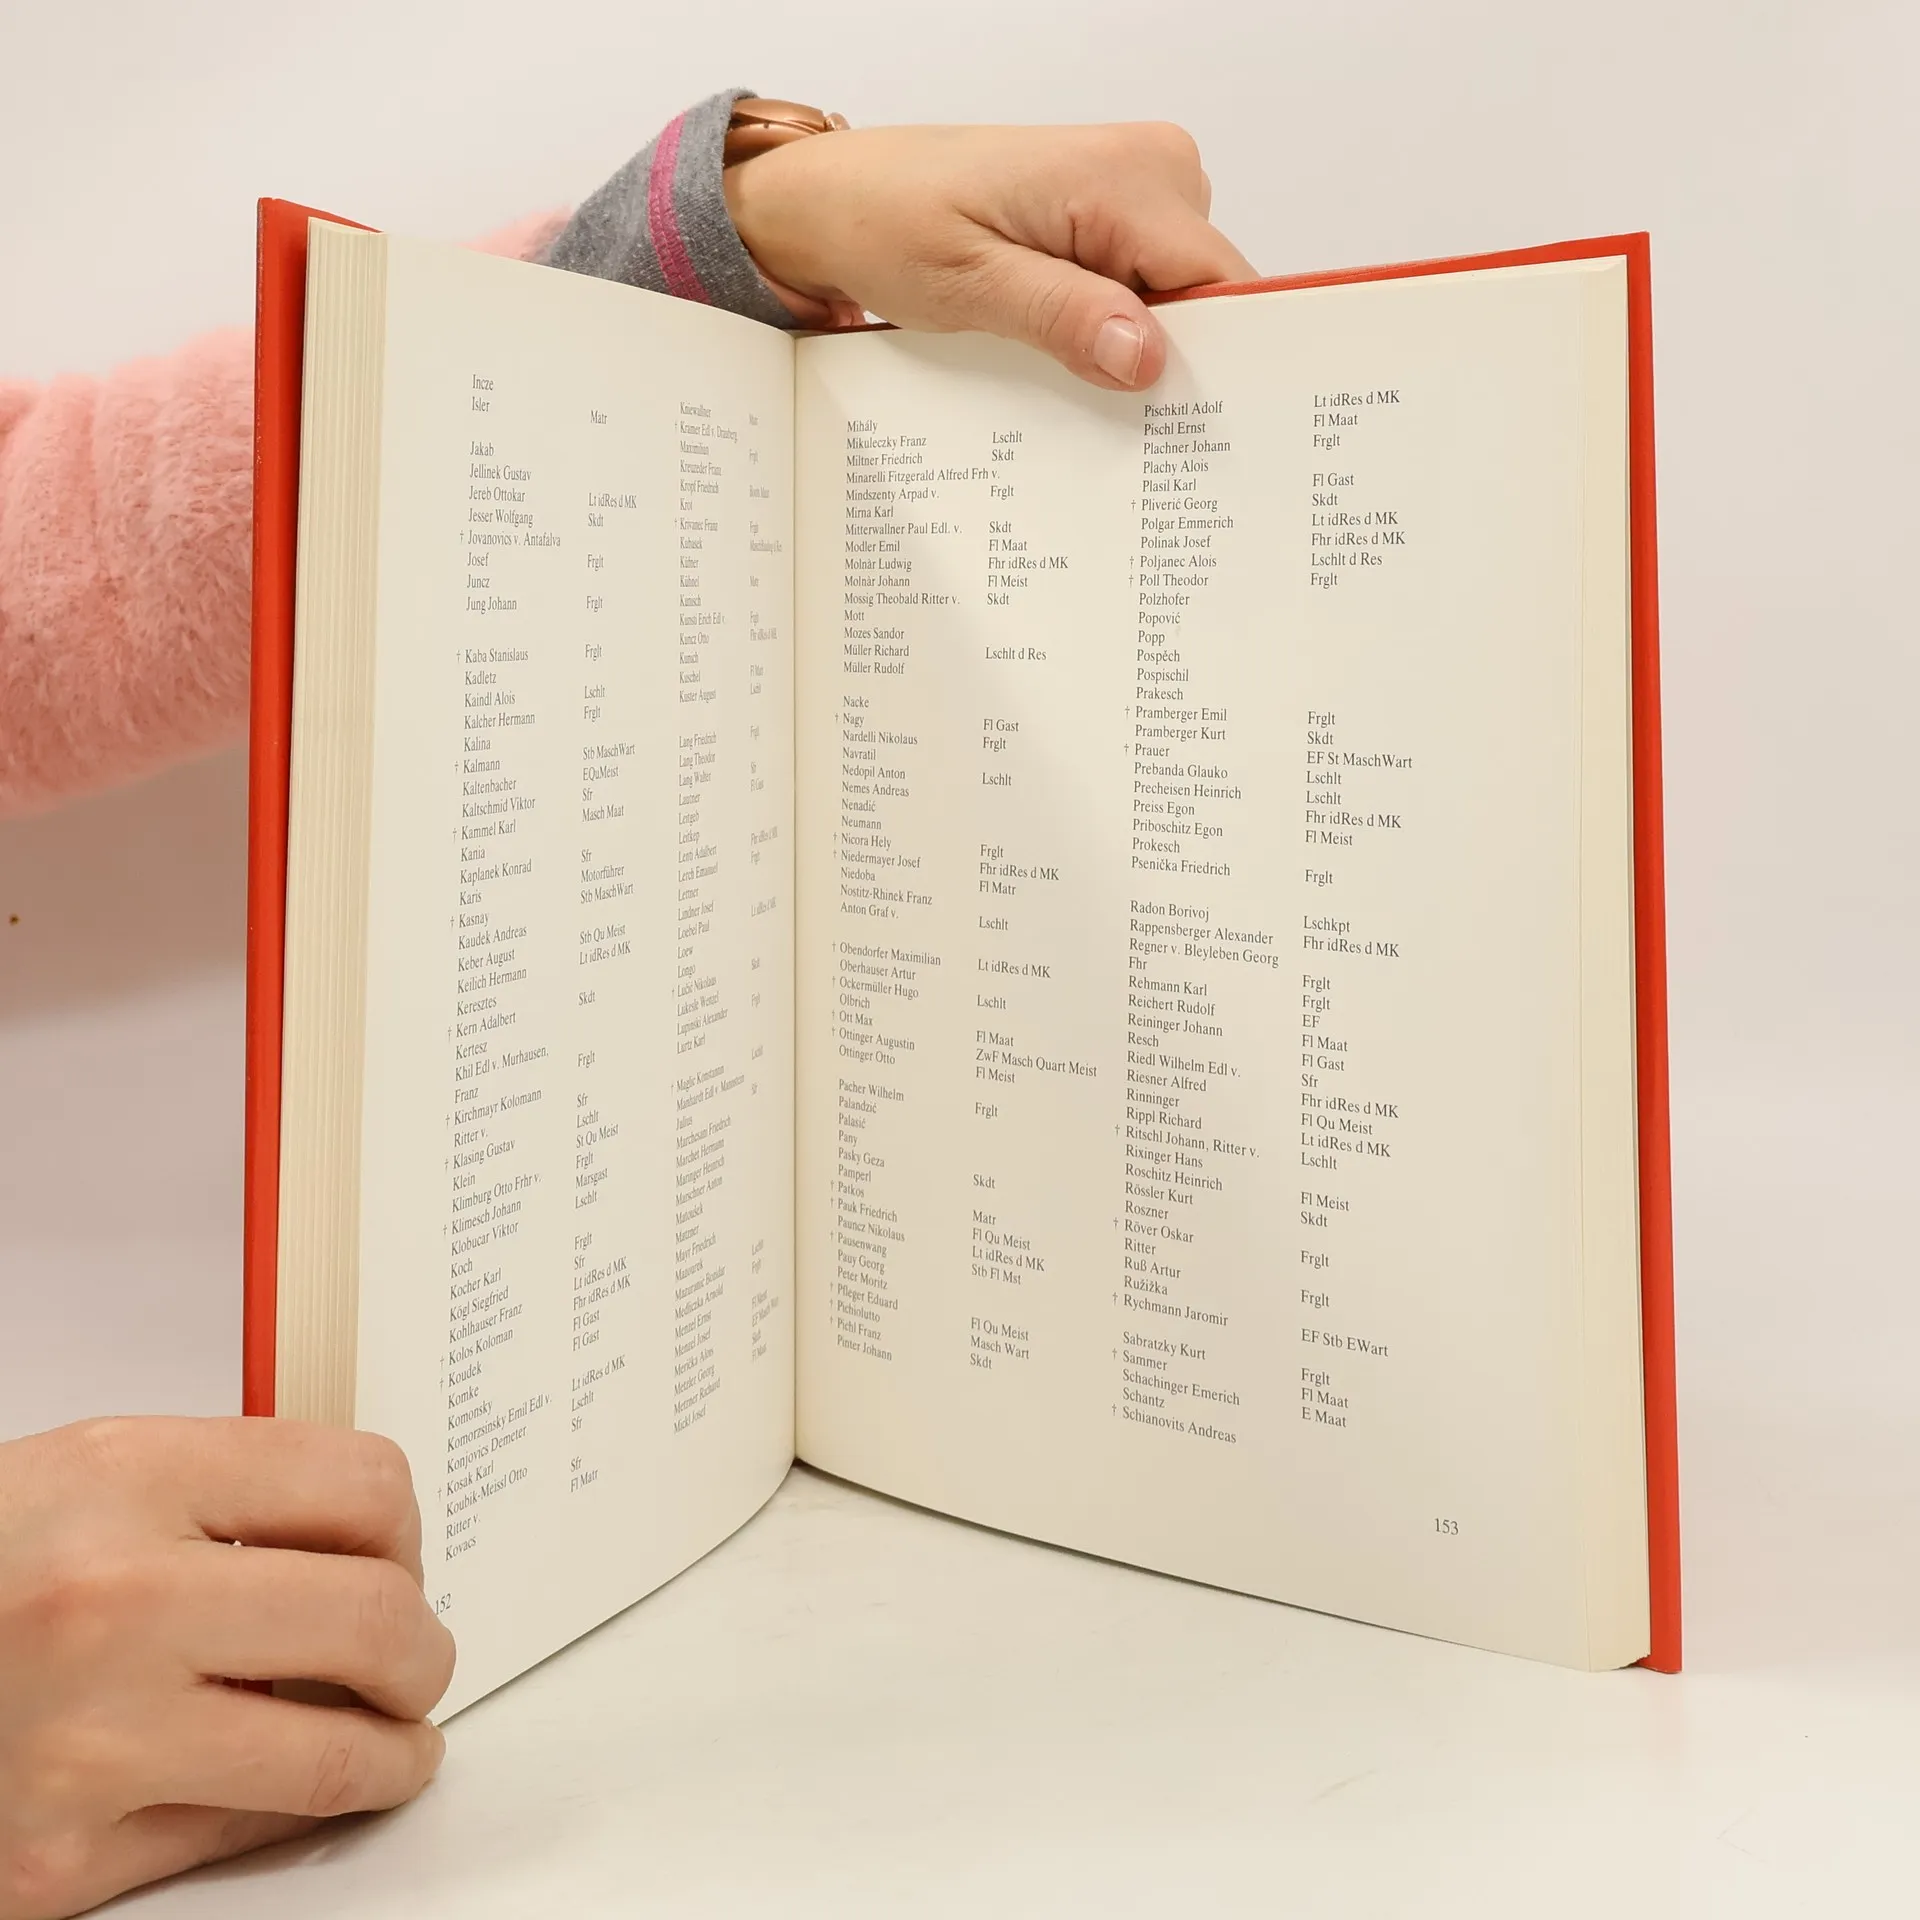 Incze
Isler
Jakab
Jellinek Gustav
Jereb Ottokar
Jesser Wolfgang
† Jovanovics v. Antafalva
Josef
Juncz
Jung Johann
† Kaba Stanislaus
Kadletz
Kaindl Alois
Kalcher Hermann
Kalina
† Kalmann
Kaltenbacher
Kaltschmid Viktor
† Kammel Karl
Kania
Kaplanek Konrad
Karis
† Kasnay
Kaudek Andreas
Keber August
Keilich Hermann
Keresztes
† Kern Adalbert
Kertesz
Khil Edl v. Murhausen,
Franz
† Kirchmayr Kolomann
Ritter v.
† Klasing Gustav
Klein
Klimburg Otto Frhr v.
† Klimesch Johann
Klobucar Viktor
Koch
Kocher Karl
Kögl Siegfried
Kohlhauser Franz
† Kolos Koloman
† Koudek
Komke
Komonsky
Komorzsinsky Emil Edl v.
Konjovics Demeter
† Kosak Karl
Koubik-Meissl Otto
Ritter v.
Kovacs
Matr
Lt idRes d MK
Skdt
Frglt
Frglt
Frglt
Lschlt
Frglt
Stb MaschWart
EQuMeist
Sfr
Masch Maat
Sfr
Motorführer
Stb MaschWart
Stb Qu Meist
Lt idRes d MK
Skdt
Frglt
Sfr
Lschlt
St Qu Meist
Frglt
Marsgast
Lschlt
Frglt
Sfr
Lt idRes d MK
Fhr idRes d MK
Fl Gast
Fl Gast
Lt idRes d MK
Lschlt
Sfr
Sfr
Fl Matr
Kniewallner
† Kramer Edl v. Drauberg,
Maximilian
Kreuzeder Franz
Kropf Friedrich
Krot
† Krivanec Franz
Kubasek
Kühnel
Kunsch
Kunsti Erich Edl v.
Kuncz Otto
Kunsch
Kuschel
Kuster August
Lang Friedrich
Lang Theodor
Lang Walter
Lautner
Leitgeb
Lenti Adalbert
Lerch Emanuel
Lettner
Lindner Josef
Loebel Paul
Loew
Longo
† Lučić Nikolaus
Lukesle Wenzel
Lupinski Alexander
Lurtz Karl
† Maglic Konstantin
Julius
Marchesani Friedrich
Marchet Hermann
Maringer Heinrich
Marschner Anton
Matoušek
Matzner
Mayr Friedrich
Menzel Ernst
Menzel Josef
Merička Alois
Metzler Georg
Metzner Richard
Mickl Josef
152
Mihály
Mikuleczky Franz
Miltner Friedrich
Minarelli Fitzgerald Alfred Frh v.
Mindszenty Arpad v.
Mirna Karl
Mitterwallner Paul Edl. v.
Modler Emil
Molnàr Ludwig
Molnàr Johann
Mossig Theobald Ritter v.
Mott
Mozes Sandor
Müller Richard
Müller Rudolf
Nacke
† Nagy
Nardelli Nikolaus
Navratil
Nedopil Anton
Nemes Andreas
Nenadić
Neumann
† Nicora Hely
† Niedermayer Josef
Niedoba
Nostitz-Rhinek Franz
Anton Graf v.
† Obendorfer Maximilian
Oberhauser Artur
† Ockermüller Hugo
Olbrich
† Ott Max
† Ottinger Augustin
Ottinger Otto
Pacher Wilhelm
Palandzić
Palasić
Pany
Pasky Geza
Pamperl
† Patkos
† Pauk Friedrich
Pauncz Nikolaus
† Pausenwang
Pauy Georg
Peter Moritz
† Pfleger Eduard
† Pichiolutto
† Piehl Franz
Pinter Johann
Lschlt
Skdt
Frglt
Skdt
Fl Maat
Fhr idRes d MK
Fl Meist
Skdt
Lschlt d Res
Fl Gast
Frglt
Lschlt
Frglt
Fhr idRes d MK
Fl Matr
Lschlt
Lt idRes d MK
Lschlt
Fl Maat
ZwF Masch Quart Meist
Fl Meist
Frglt
Skdt
Matr
Fl Qu Meist
Lt idRes d MK
Stb Fl Mst
Fl Qu Meist
Masch Wart
Skdt
Pischkitl Adolf
Pischl Ernst
Plachner Johann
Plachy Alois
Plasil Karl
† Pliverić Georg
Polgar Emmerich
Polinak Josef
† Poljanec Alois
† Poll Theodor
Polzhofer
Popović
Popp
Pospěch
Pospischil
Prakesch
† Pramberger Emil
Pramberger Kurt
† Prauer
Prebanda Glauko
Precheisen Heinrich
Preiss Egon
Priboschitz Egon
Prokesch
Psenička Friedrich
Radon Borivoj
Rappensberger Alexander
Regner v. Bleyleben Georg
Fhr
Rehmann Karl
Reichert Rudolf
Reininger Johann
Resch
Riedl Wilhelm Edl v.
Riesner Alfred
Rinninger
Rippl Richard
† Ritschl Johann, Ritter v.
Rixinger Hans
Roschitz Heinrich
Rössler Kurt
Roszner
† Röver Oskar
Ritter
Ruß Artur
Ružižka
† Rychmann Jaromir
Sabratzky Kurt
† Sammer
Schachinger Emerich
Schantz
† Schianovits Andreas
Lt idRes d MK
Fl Maat
Frglt
Fl Gast
Skdt
Lt idRes d MK
Fhr idRes d MK
Lschlt d Res
Frglt
Frglt
Skdt
EF St MaschWart
Lschlt
Lschlt
Fhr idRes d MK
Fl Meist
Frglt
Lschkpt
Fhr idRes d MK
Frglt
Frglt
EF
Fl Maat
Fl Gast
Sfr
Fhr idRes d MK
Fl Qu Meist
Lt idRes d MK
Lschlt
Fl Meist
Skdt
Frglt
Frglt
EF Stb EWart
Frglt
Fl Maat
E Maat
153